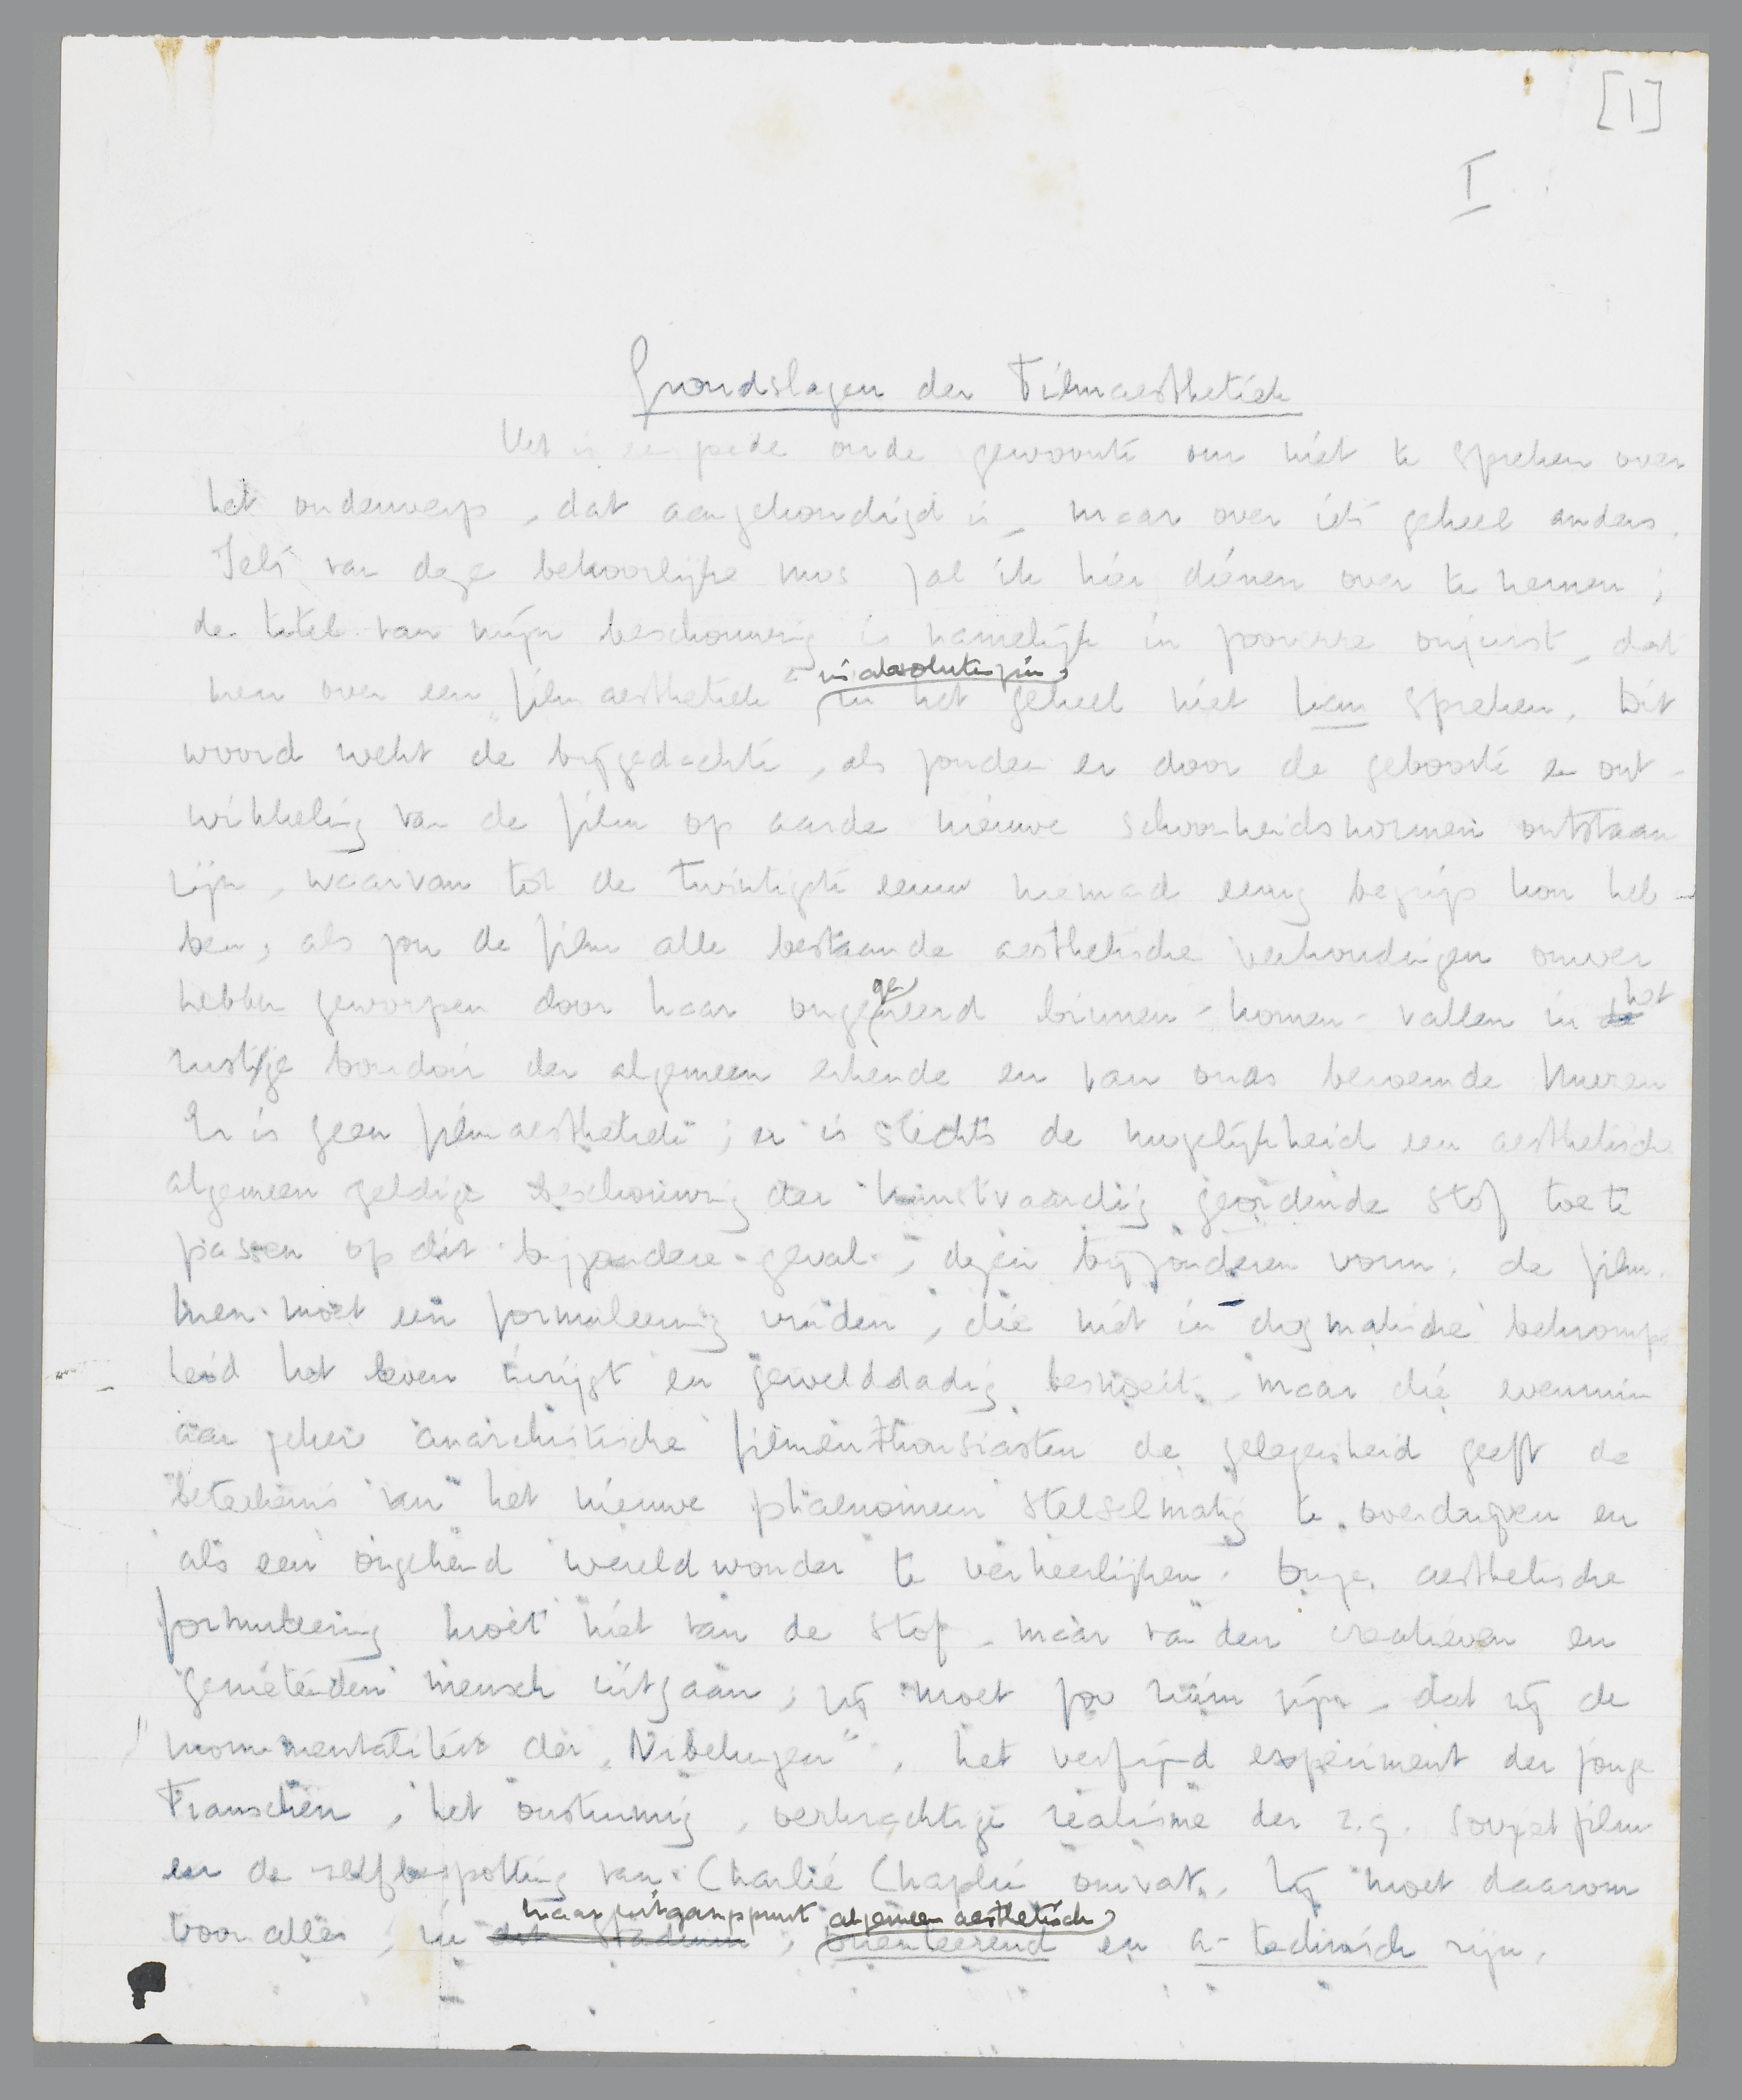 [1]
I
Grondslagen der Filmaesthetiek
Het is een goede oude gewoonte om niet te spreken over
het onderwerp, dat aangekondigd is, maar over iets geheel anders.
Iets van deze behoorlijke mos zal ik hier dienen over te nemen;
de titel van mijn beschouwing is namelijk in zooverre onjuist, dat
in absolute zin
men over een "filmaesthetiek" in het geheel niet kan spreken. Dit
woord wekt de bijgedachte, als zouden er door de geboorte en ont-
wikkeling van de film op aarde nieuwe schoonheidsnormen ontstaan
zijn, waarvan tot de twintigste eeuw niemand eenig begrip kon heb-
ben, als zou de film alle bestaande aesthetische verhoudingen omver
hebben geworpen door haar ongegeneerd binnen-komen-vallen in de het
rustige boudoir der algemeen erkende en van ouds beroemde Muzen
Er is geen filmaesthetiek; er is slechts de mogelijkheid een aesthetische
algemeen geldige beschouwing der kunstvaardig geordende stof toe te
passen op dit bijzondere geval, dezen bijzonderen vorm: de film.
Men moet een formuleering vinden, die niet in dogmatische bekrompen
heid het leven knijpt en gewelddadig besnoeit, maar die evenmin
aan zekere anarchistische filmenthousiasten de gelegenheid geeft de
beteekenis van het nieuwe phaenomeen stelselmatig te overdrijven en
als een ongekend wereldwonder te verheerlijken. Onze aesthetische
formuleering moet niet van de stof, maar van den creatieven en
genietenden mensch uitgaan; zij moet zoo ruim zijn, dat zij de
monumentaliteit der "Nibelungen", het verfijnd experiment der jonge
Franschen, het onstuimig, oerkrachtige realisme der z.g. Sovjetfilm
en de zelfbespotting van Charlie Chaplin omvat. Zij moet daarom
haar uitgangspunt algemeen aesthetisch
voor alles, in dit stadium, oriënteerend en a-technisch zijn.